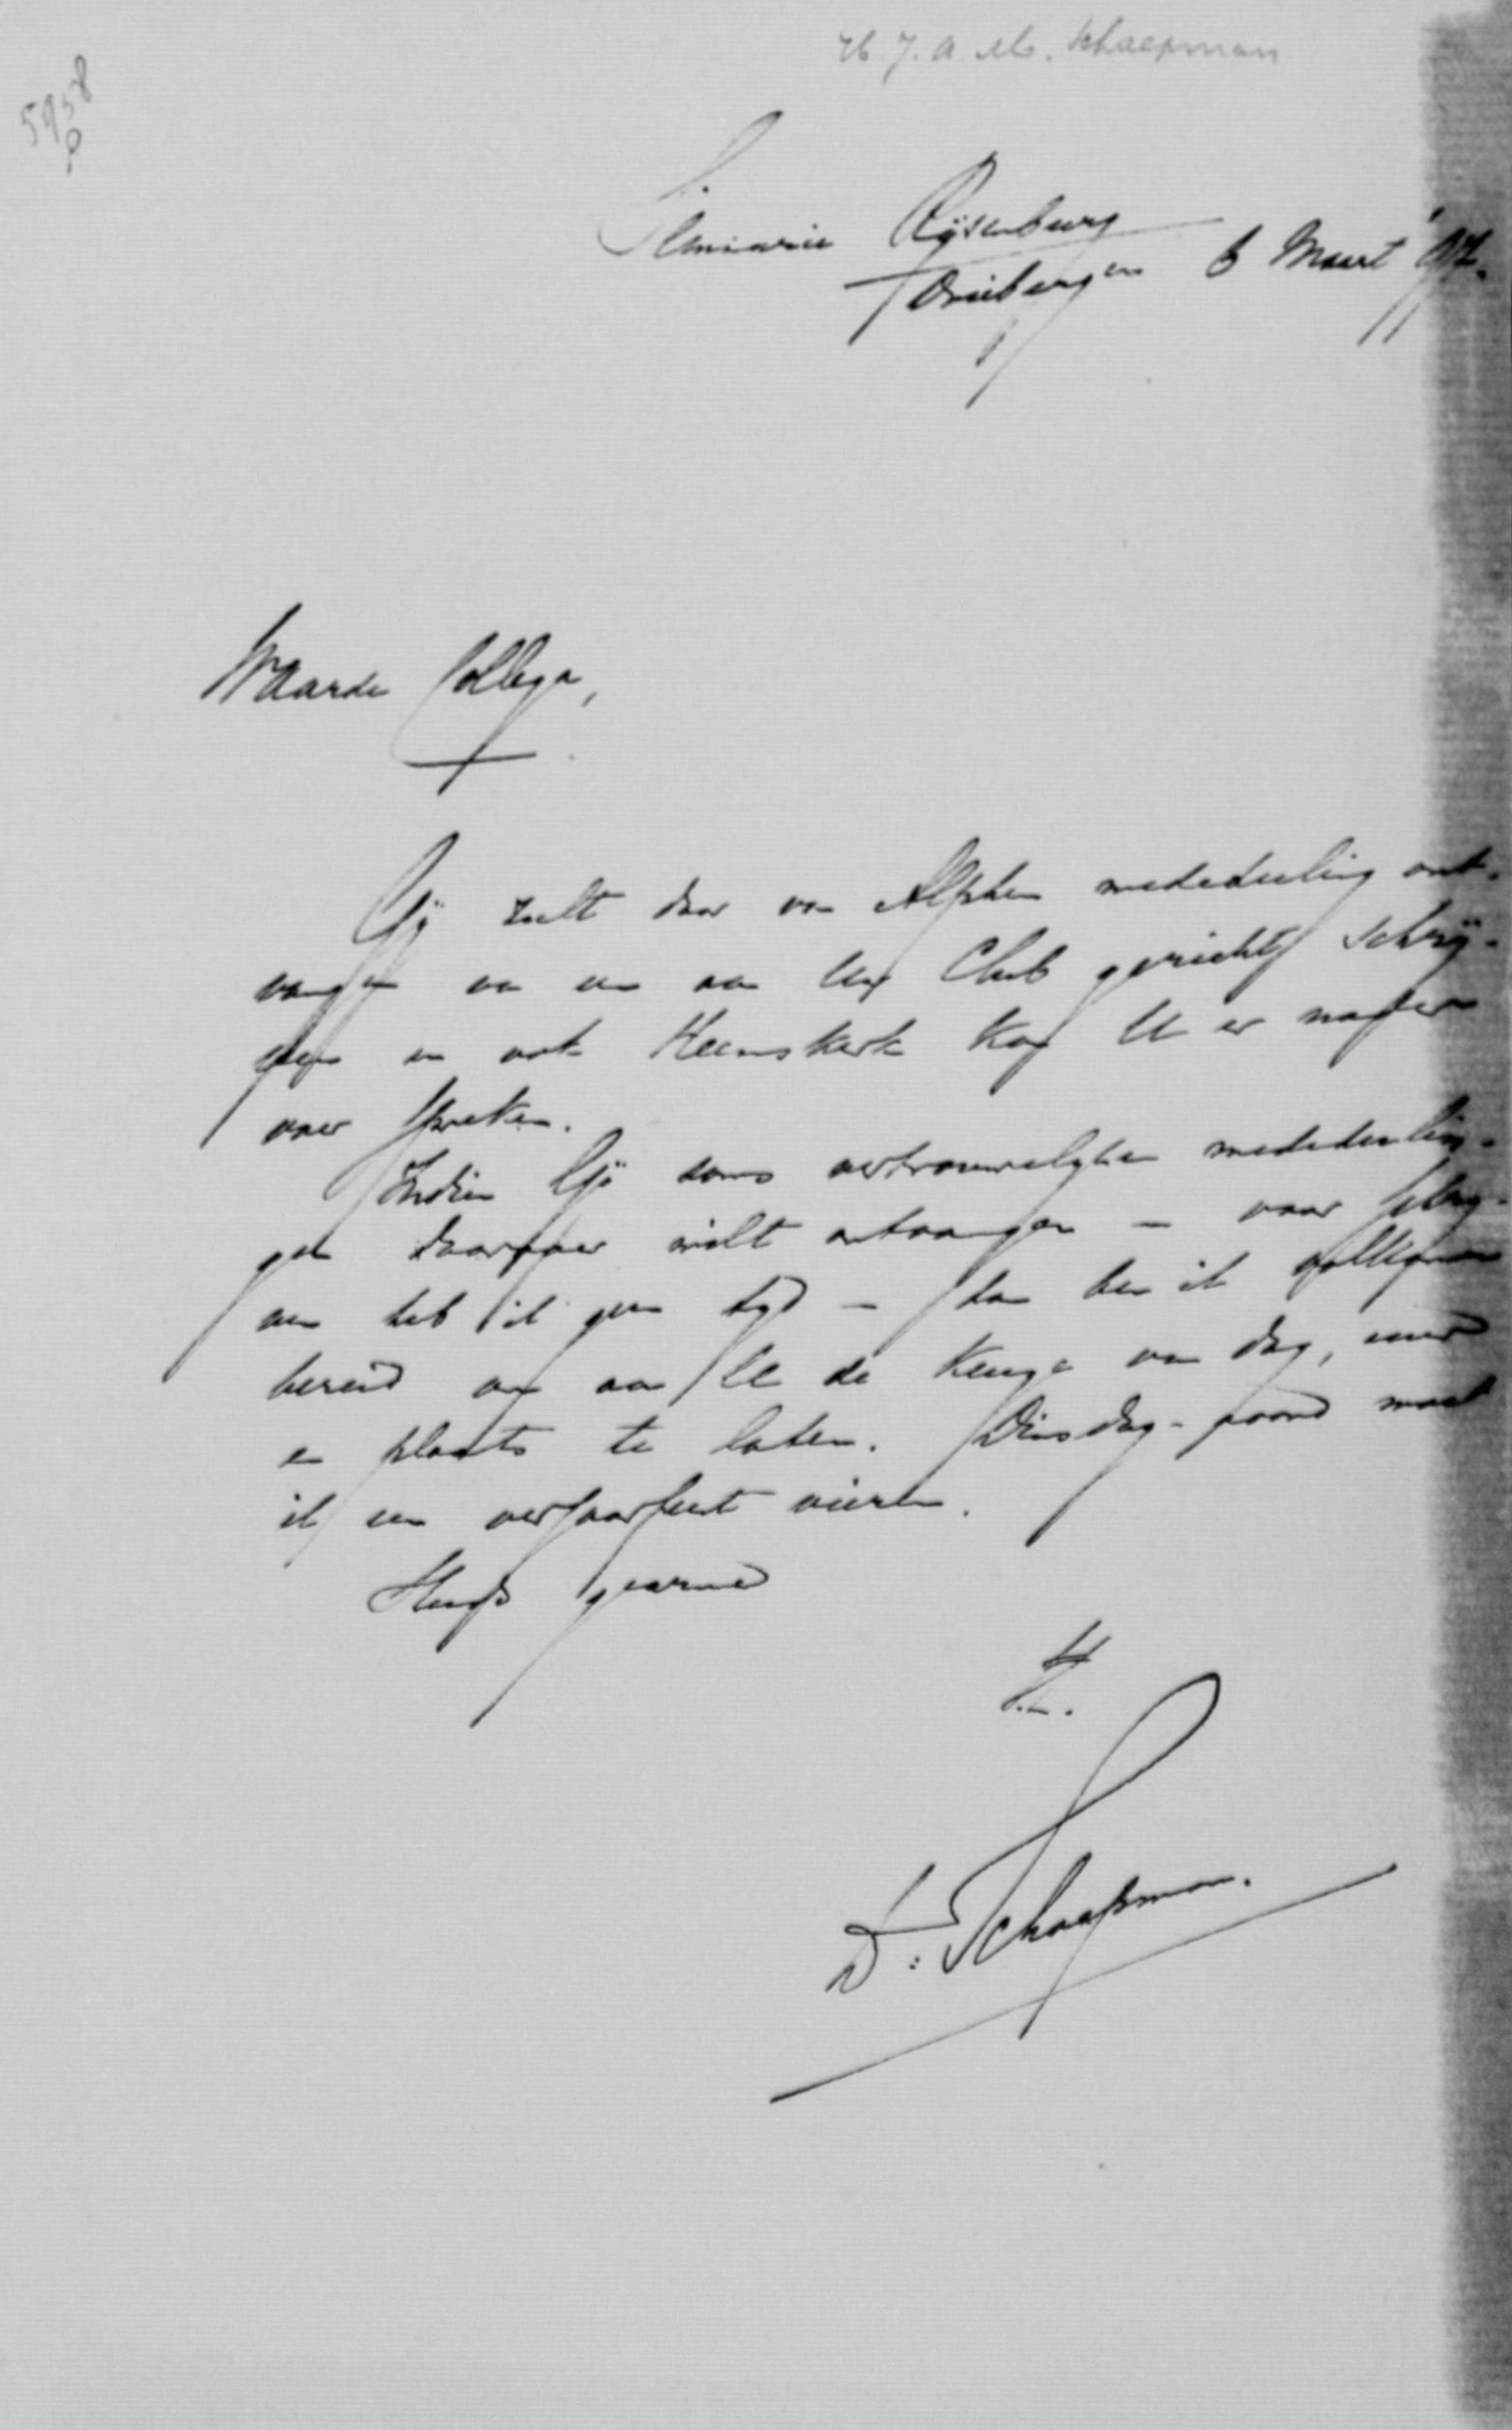 H. J. A. M. Schaepman
5958
Seminarie Rijsenburg
Driebergen 6 Maart
Waarde Collega,
Gij zult door van Alphen mededeeling ont-
vangen van een aan Uw Club gericht schrij-
ven en ook Heemskerk kan U er nader
over spreken.
Indien Gij soms vertrouwelijke mededeelin-
gen daarover wilt ontvangen — voor schrij-
ven heb ik geen tijd — dan ben ik volkomen
bereid om aan U de keuze van dag, uur
en plaats te laten. Dinsdag-avond moet
ik een verjaarfeest vieren.
Steeds gaarne
Dr. Schaepman.